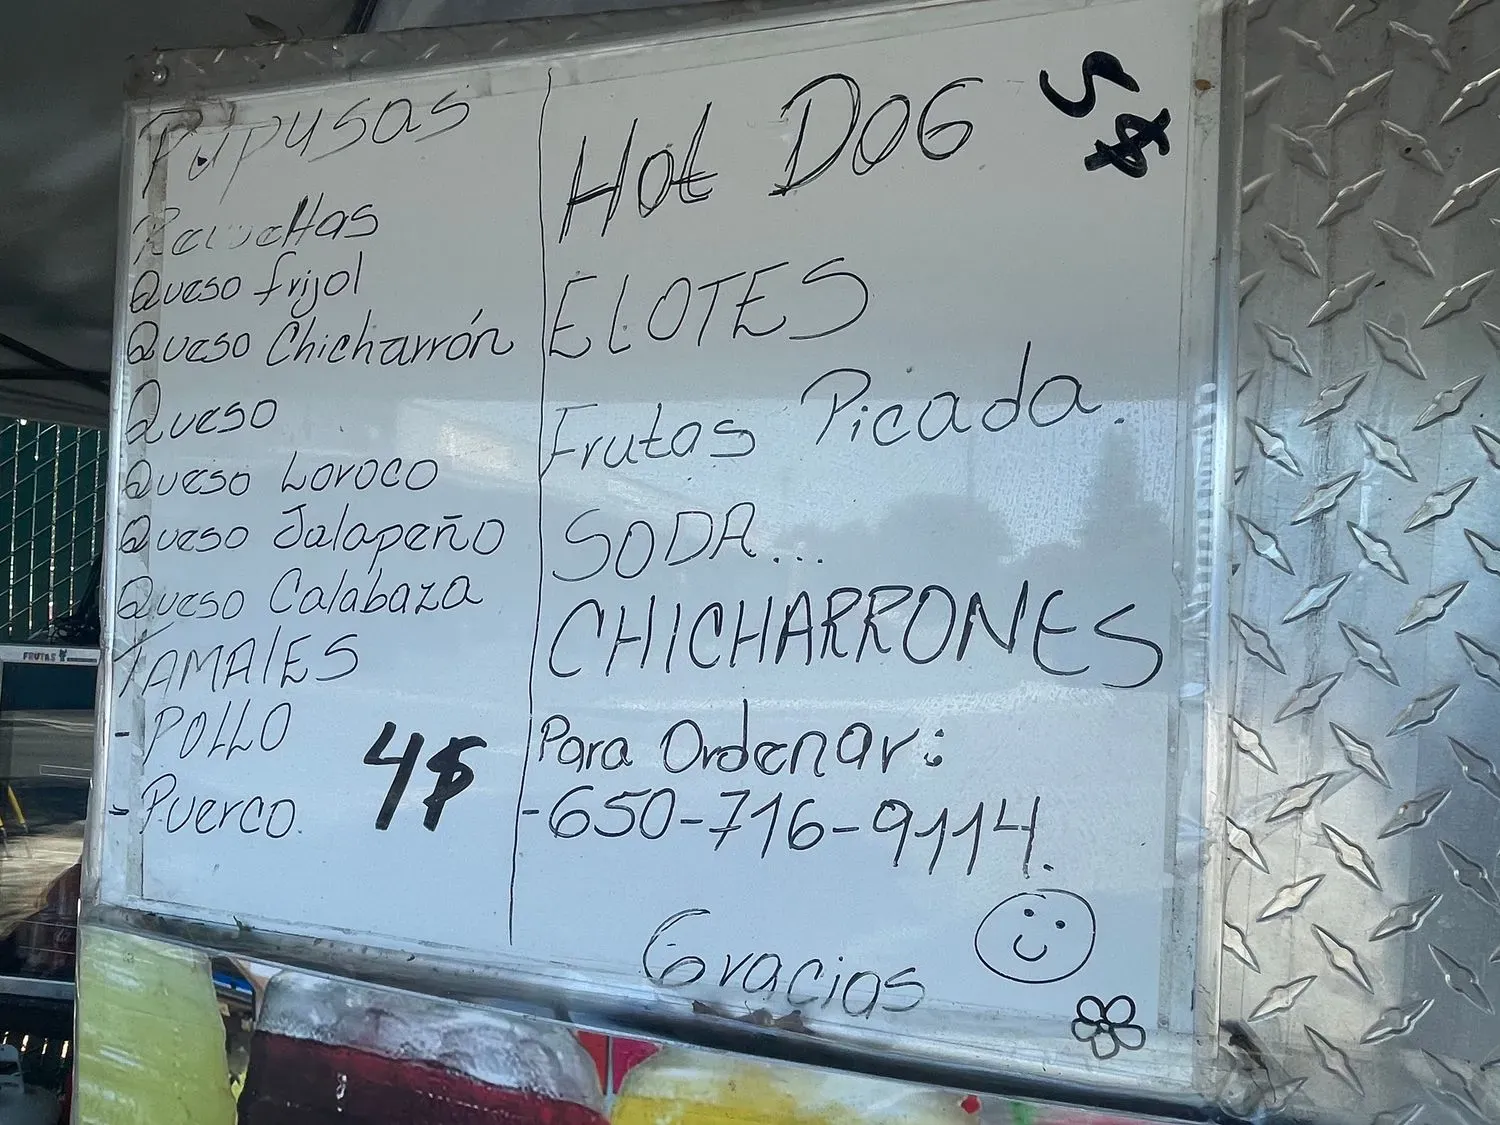 Pupusas
Revueltas
Queso frijol
Queso Chicharrón
Queso
Queso Loroco
Queso Jalapeño
Queso Calabaza
TAMALES
- POLLO
- Puerco.
4$
Hot DOG 5$
ELOTES
Frutas Picada.
SODA...
CHICHARRONES
Para Ordenar:
-650-716-9114.
Gracias
FRUTAS